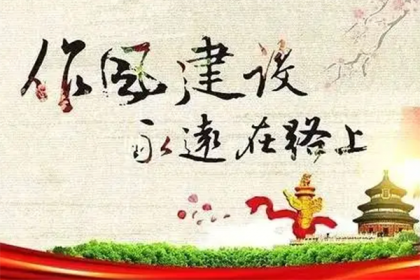 作风建设
永遠在路上